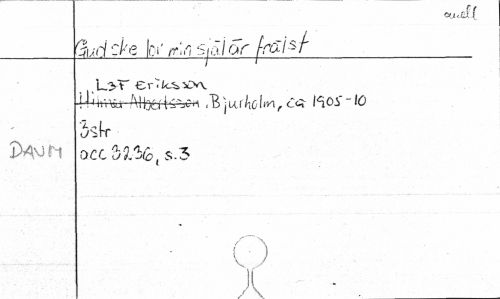 Gud ske lov min själ är frälst
L3F Eriksson
Hilmer Albertsson, Bjurholm, ca 1905-10
3 str
DAUM acc 3236, s.3